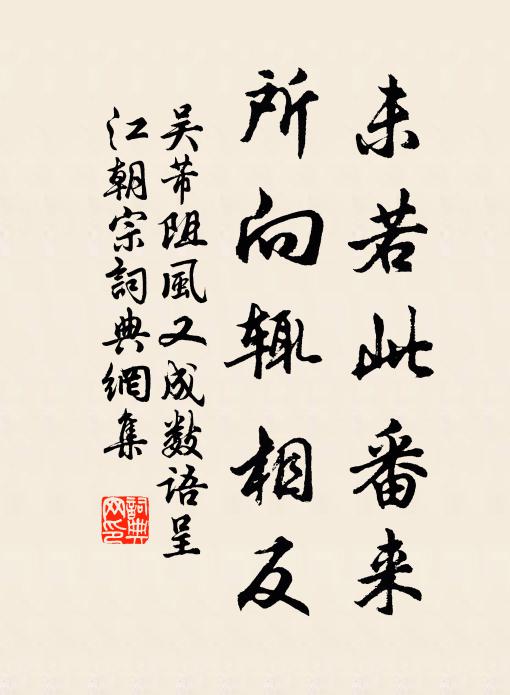 未若此番来
所向辄相反
吴芾阻風又成数语呈
江朝宗詞典網集
詞典
网印